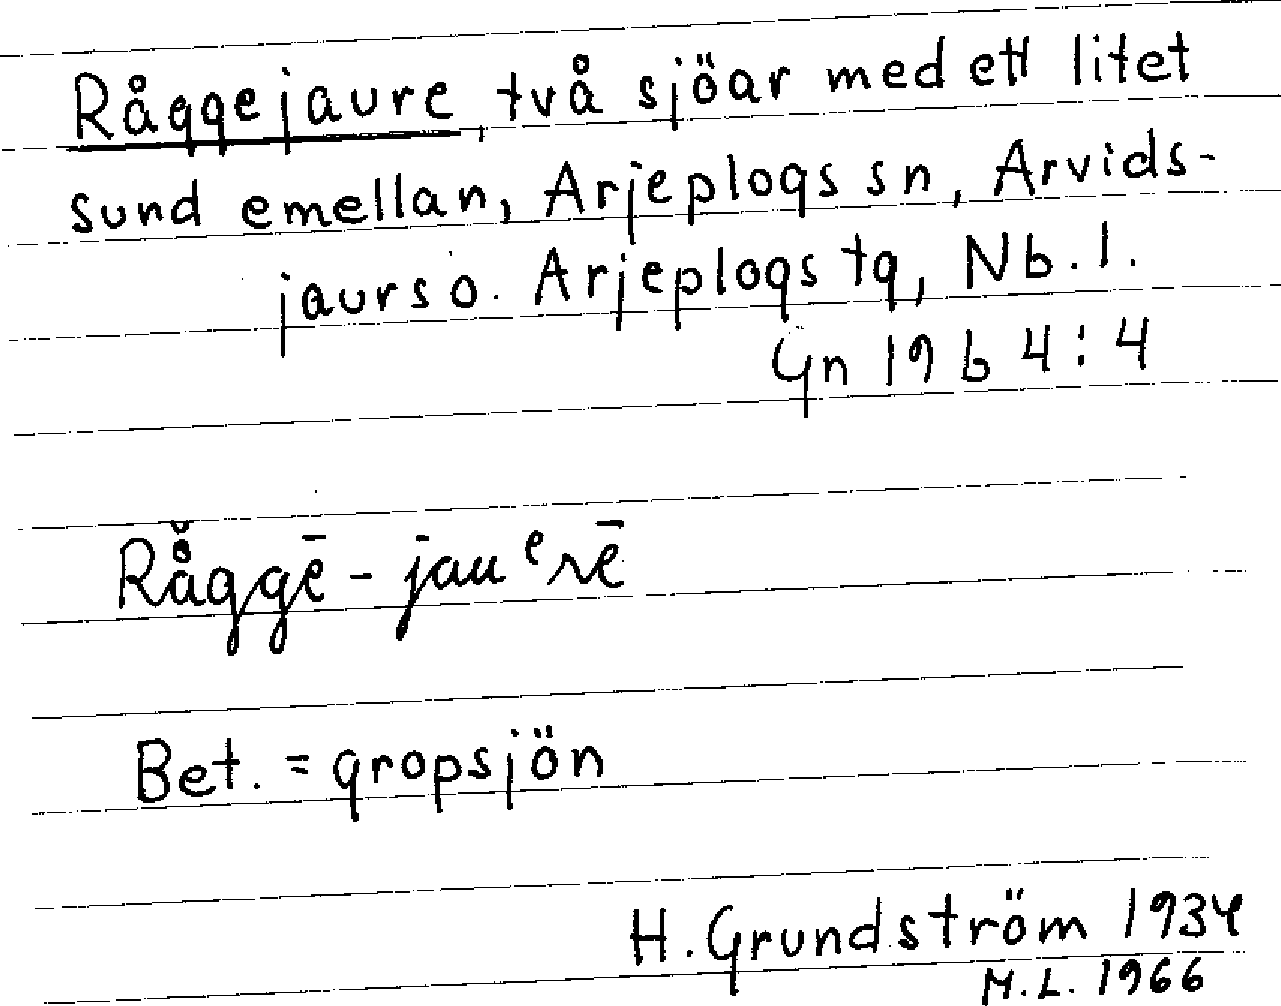 Råggejaure, två sjöar med ett litet
sund emellan, Arjeplogs sn, Arvids-
jaurs o. Arjeplogs tg, Nb. l.
Gn 19 b 4:4
Rå̆ggē - jauᵉrē
Bet. = gropsjön
H. Grundström 1934
M.L. 1966